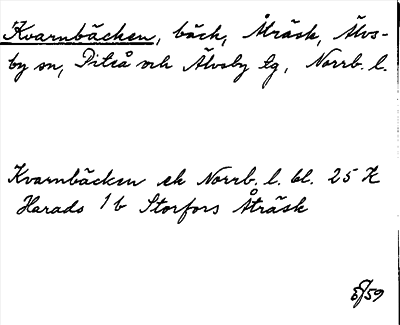 Kvarnbäcken, bäck, Åträsk, Älvs-
by sn, Piteå och Älvsby tg, Norrb. l.
Kvarnbäcken ek Norrb. l. bl. 25 K
Harads 1b Storfors Åträsk
59